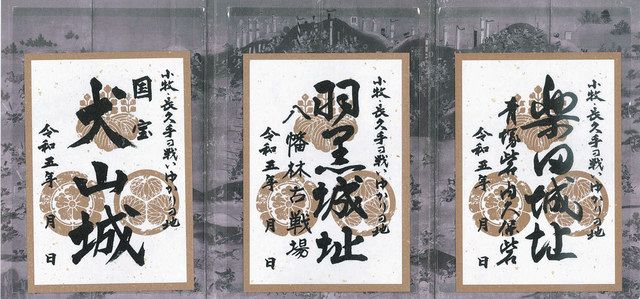 小牧・長久手の戦い ゆかりの地
楽田城址
青塚砦 内久保砦
令和五年 月 日
小牧・長久手の戦い ゆかりの地
羽黒城址
八幡林古戦場
令和五年 月 日
小牧・長久手の戦い ゆかりの地
国宝
犬山城
令和五年 月 日